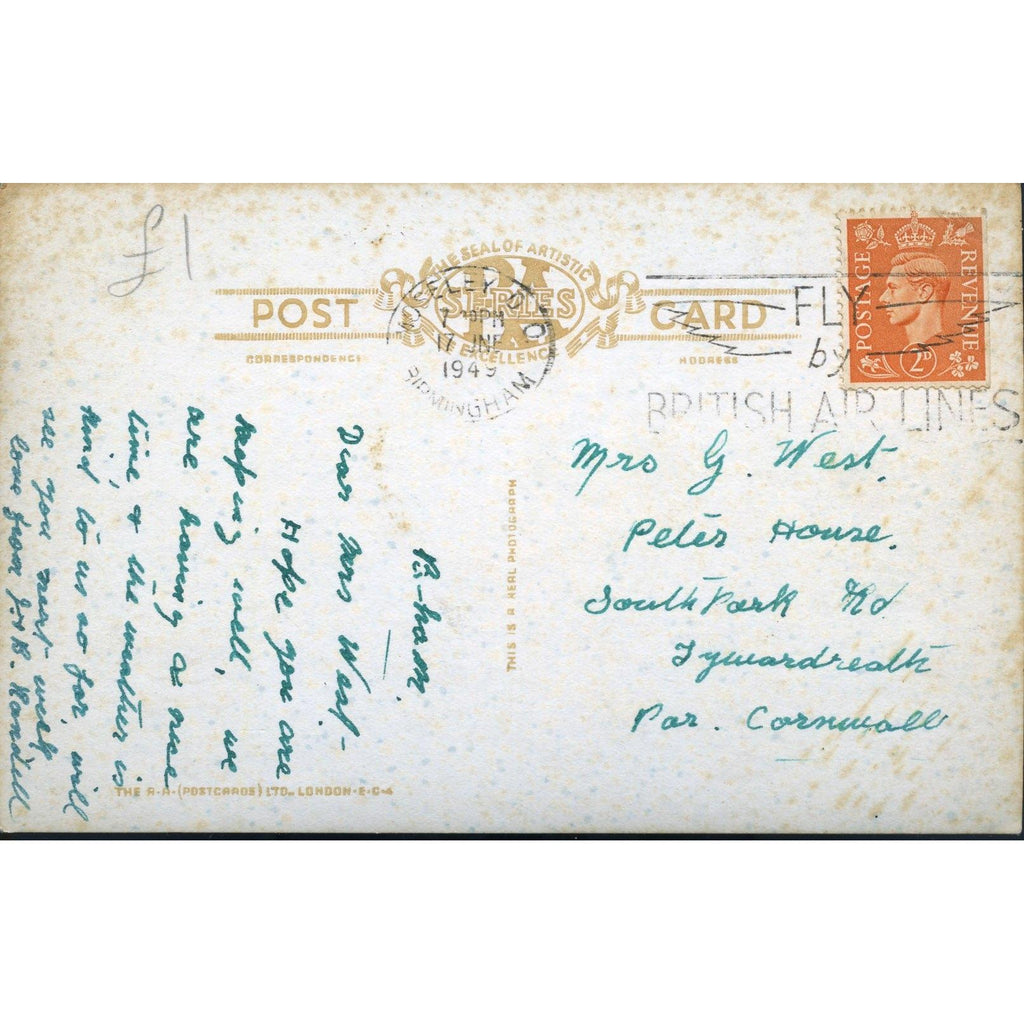 £1
THE SEAL OF ARTISTIC
RA
SERIES
EXCELLENCE
POST CARD
CORRESPONDENCE
ADDRESS
MOSELEY D.O
7 30PM
17 JNE
1949
BIRMINGHAM
FLY
by
BRITISH AIR LINES
POSTAGE
REVENUE
2D
B-ham.
Dear Mrs West-
Hope you are
keeping well, we
are having a nice
time & the weather is
kind to us so far, will
see you next week
love from J & R. Randell
THIS IS A REAL PHOTOGRAPH
Mrs G. West.
Peter House.
South Park Rd
Tywardreath
Par. Cornwall
THE R.A. (POSTCARDS) LTD. LONDON-E-C-4